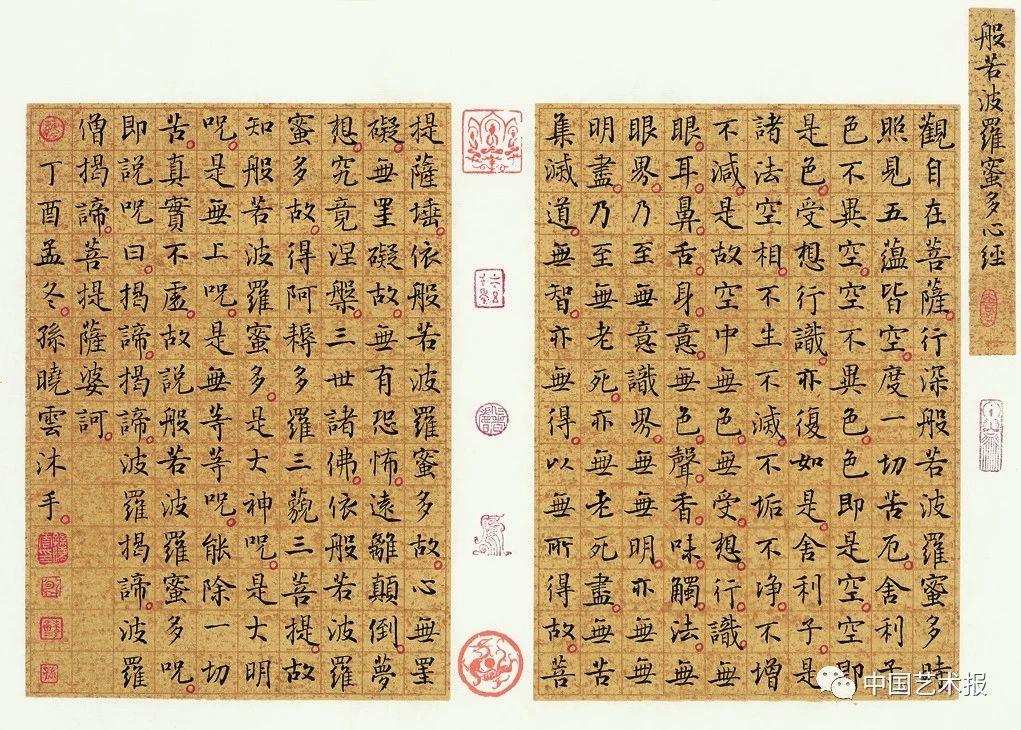 般若波羅蜜多心經
觀自在菩薩。行深般若波羅蜜多時
照見五蘊皆空。度一切苦厄。舍利子
色不異空。空不異色。色即是空。空即
是色。受想行識。亦復如是。舍利子。是
諸法空相。不生不滅。不垢不浄。不增
不減。是故空中無色。無受想行識。無
眼。耳。鼻。舌。身。意。無色。聲。香。味。觸。法。無
眼界。乃至無意識界。無無明。亦無無
明盡。乃至無老死。亦無老死盡。無苦
集滅道。無智。亦無得。以無所得故。菩
提薩埵。依般若波羅蜜多故。心無罣
礙。無罣礙故。無有恐怖。遠離顛倒。夢
想。究竟涅槃。三世諸佛。依般若波羅
蜜多故。得阿耨多羅三藐三菩提。故
知般若波羅蜜多。是大神呪。是大明
呪。是無上呪。是無等等呪。能除一切
苦。真實不虛。故說般若波羅蜜多呪。
即說呪曰。揭諦。揭諦。波羅揭諦。波羅
僧揭諦。菩提薩婆訶。
丁酉孟冬。孫曉雲沐手。
中国艺术报